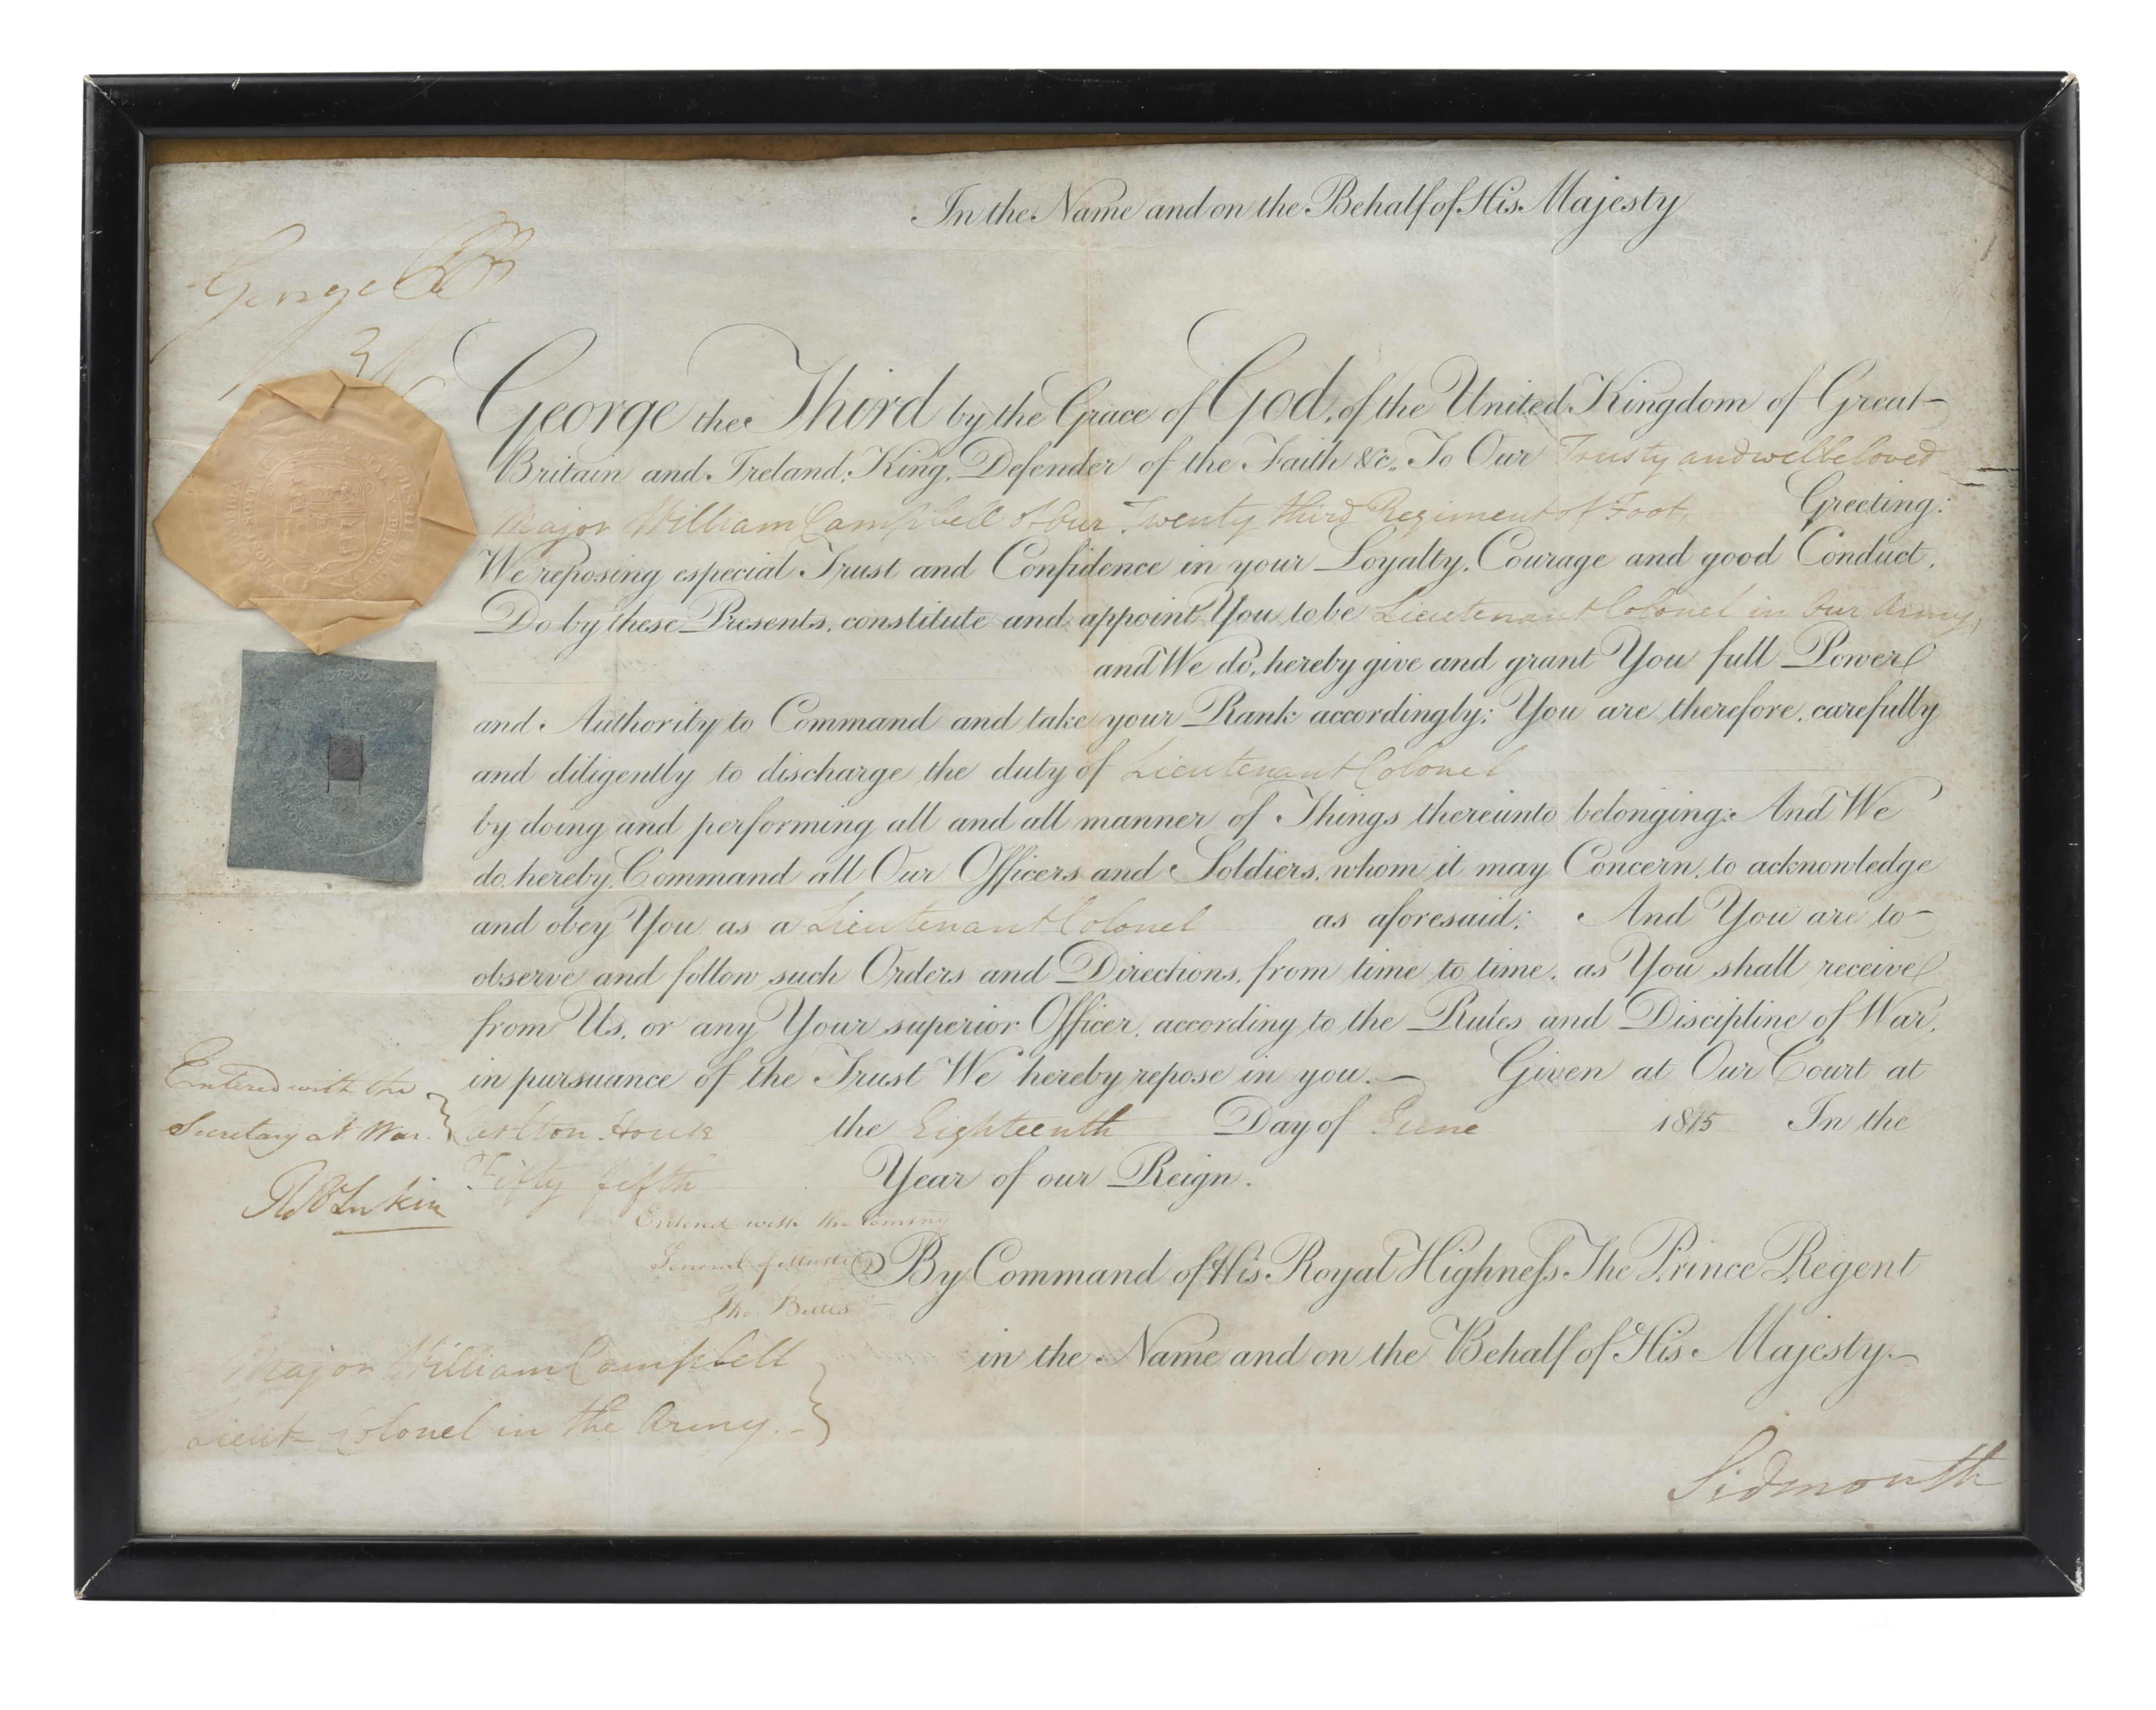 In the Name and on the Behalf of His Majesty
George PR
George the Third by the Grace of God, of the United Kingdom of Great
Britain and Ireland, King, Defender of the Faith &c. To Our Trusty and welbeloved
Major William Campbell of Our Twenty third Regiment of Foot Greeting:
We reposing especial Trust and Confidence in your Loyalty, Courage and good Conduct,
Do by these Presents, constitute and appoint You to be Lieutenant Colonel in Our Army,
and We do, hereby give and grant You full Power
and Authority to Command and take your Rank accordingly; You are therefore, carefully
and diligently to discharge the duty of Lieutenant Colonel
by doing and performing all and all manner of Things thereunto belonging: And We
do hereby Command all Our Officers and Soldiers, whom it may Concern, to acknowledge
and obey You as a Lieutenant Colonel as aforesaid: And You are to
observe and follow such Orders and Directions, from time to time, as You shall receive
from Us, or any Your superior Officer, according to the Rules and Discipline of War,
in pursuance of the Trust We hereby repose in you. Given at Our Court at
Carlton House the Eighteenth Day of June 1815 In the
Fifty fifth Year of our Reign.
Entered with the
Secretary at War.
Entered with the
General of Musters
By Command of His Royal Highness The Prince Regent
in the Name and on the Behalf of His Majesty.
Major William Campbell
Lieut. Colonel in the Army.
Sidmouth